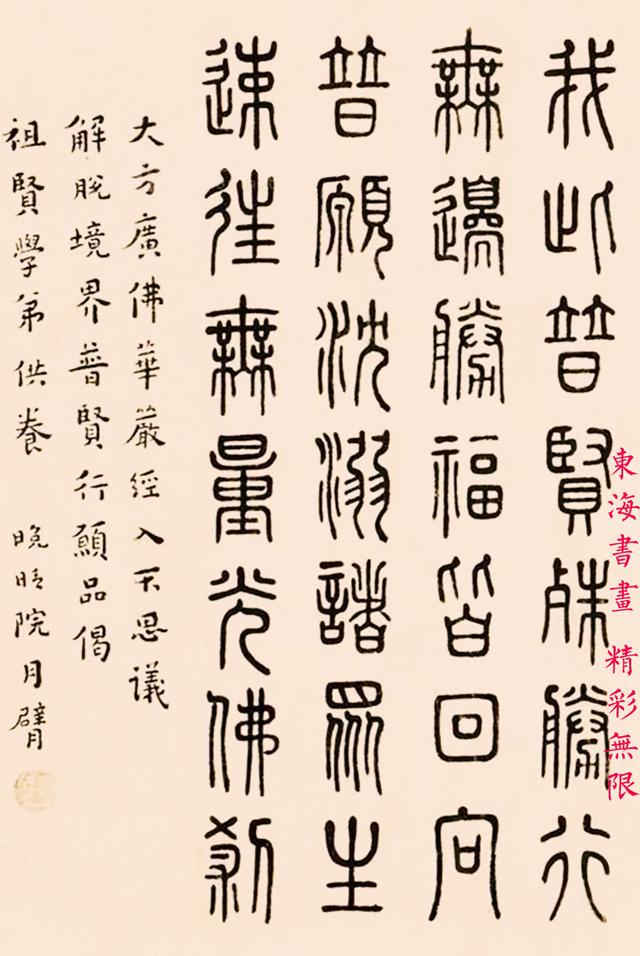 我此普賢殊勝行
無邊勝福皆回向
普願沈溺諸眾生
速往無量光佛刹
大方廣佛華嚴經入不思議
解脫境界普賢行願品偈
祖賢學弟供養 晚晴院月臂
東海書畫 精彩無限